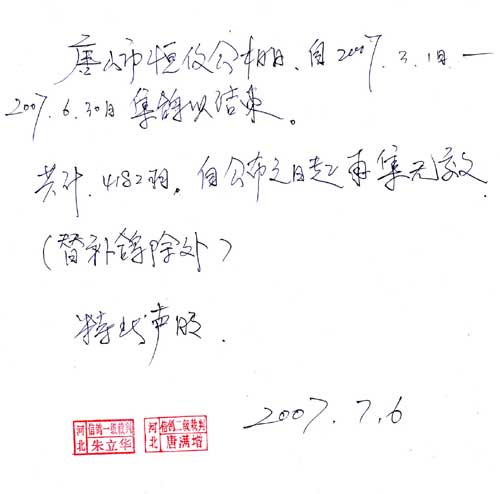 唐山市恒仪公棚.自2007.3.1日—
2007.6.30日集鸽以结束。
共计.4182羽。自公布之日起再集无效.
(替补鸽除外)
特此声明.
2007.7.6
河北 信鸽一级裁判 朱立华
河北 信鸽二级裁判 唐满增